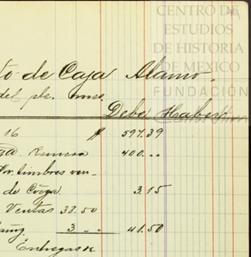 CENTRO DE
ESTUDIOS
DE HISTORIA
DE MEXICO
FUNDACIÓN
to de Caja Alamo.
del pte. mes.
Debe Haber
16 $ 597.39
Remesa 400...
Por timbres ven
de 3.15
Ventas 38.50
3 ... 41.50
Entregas